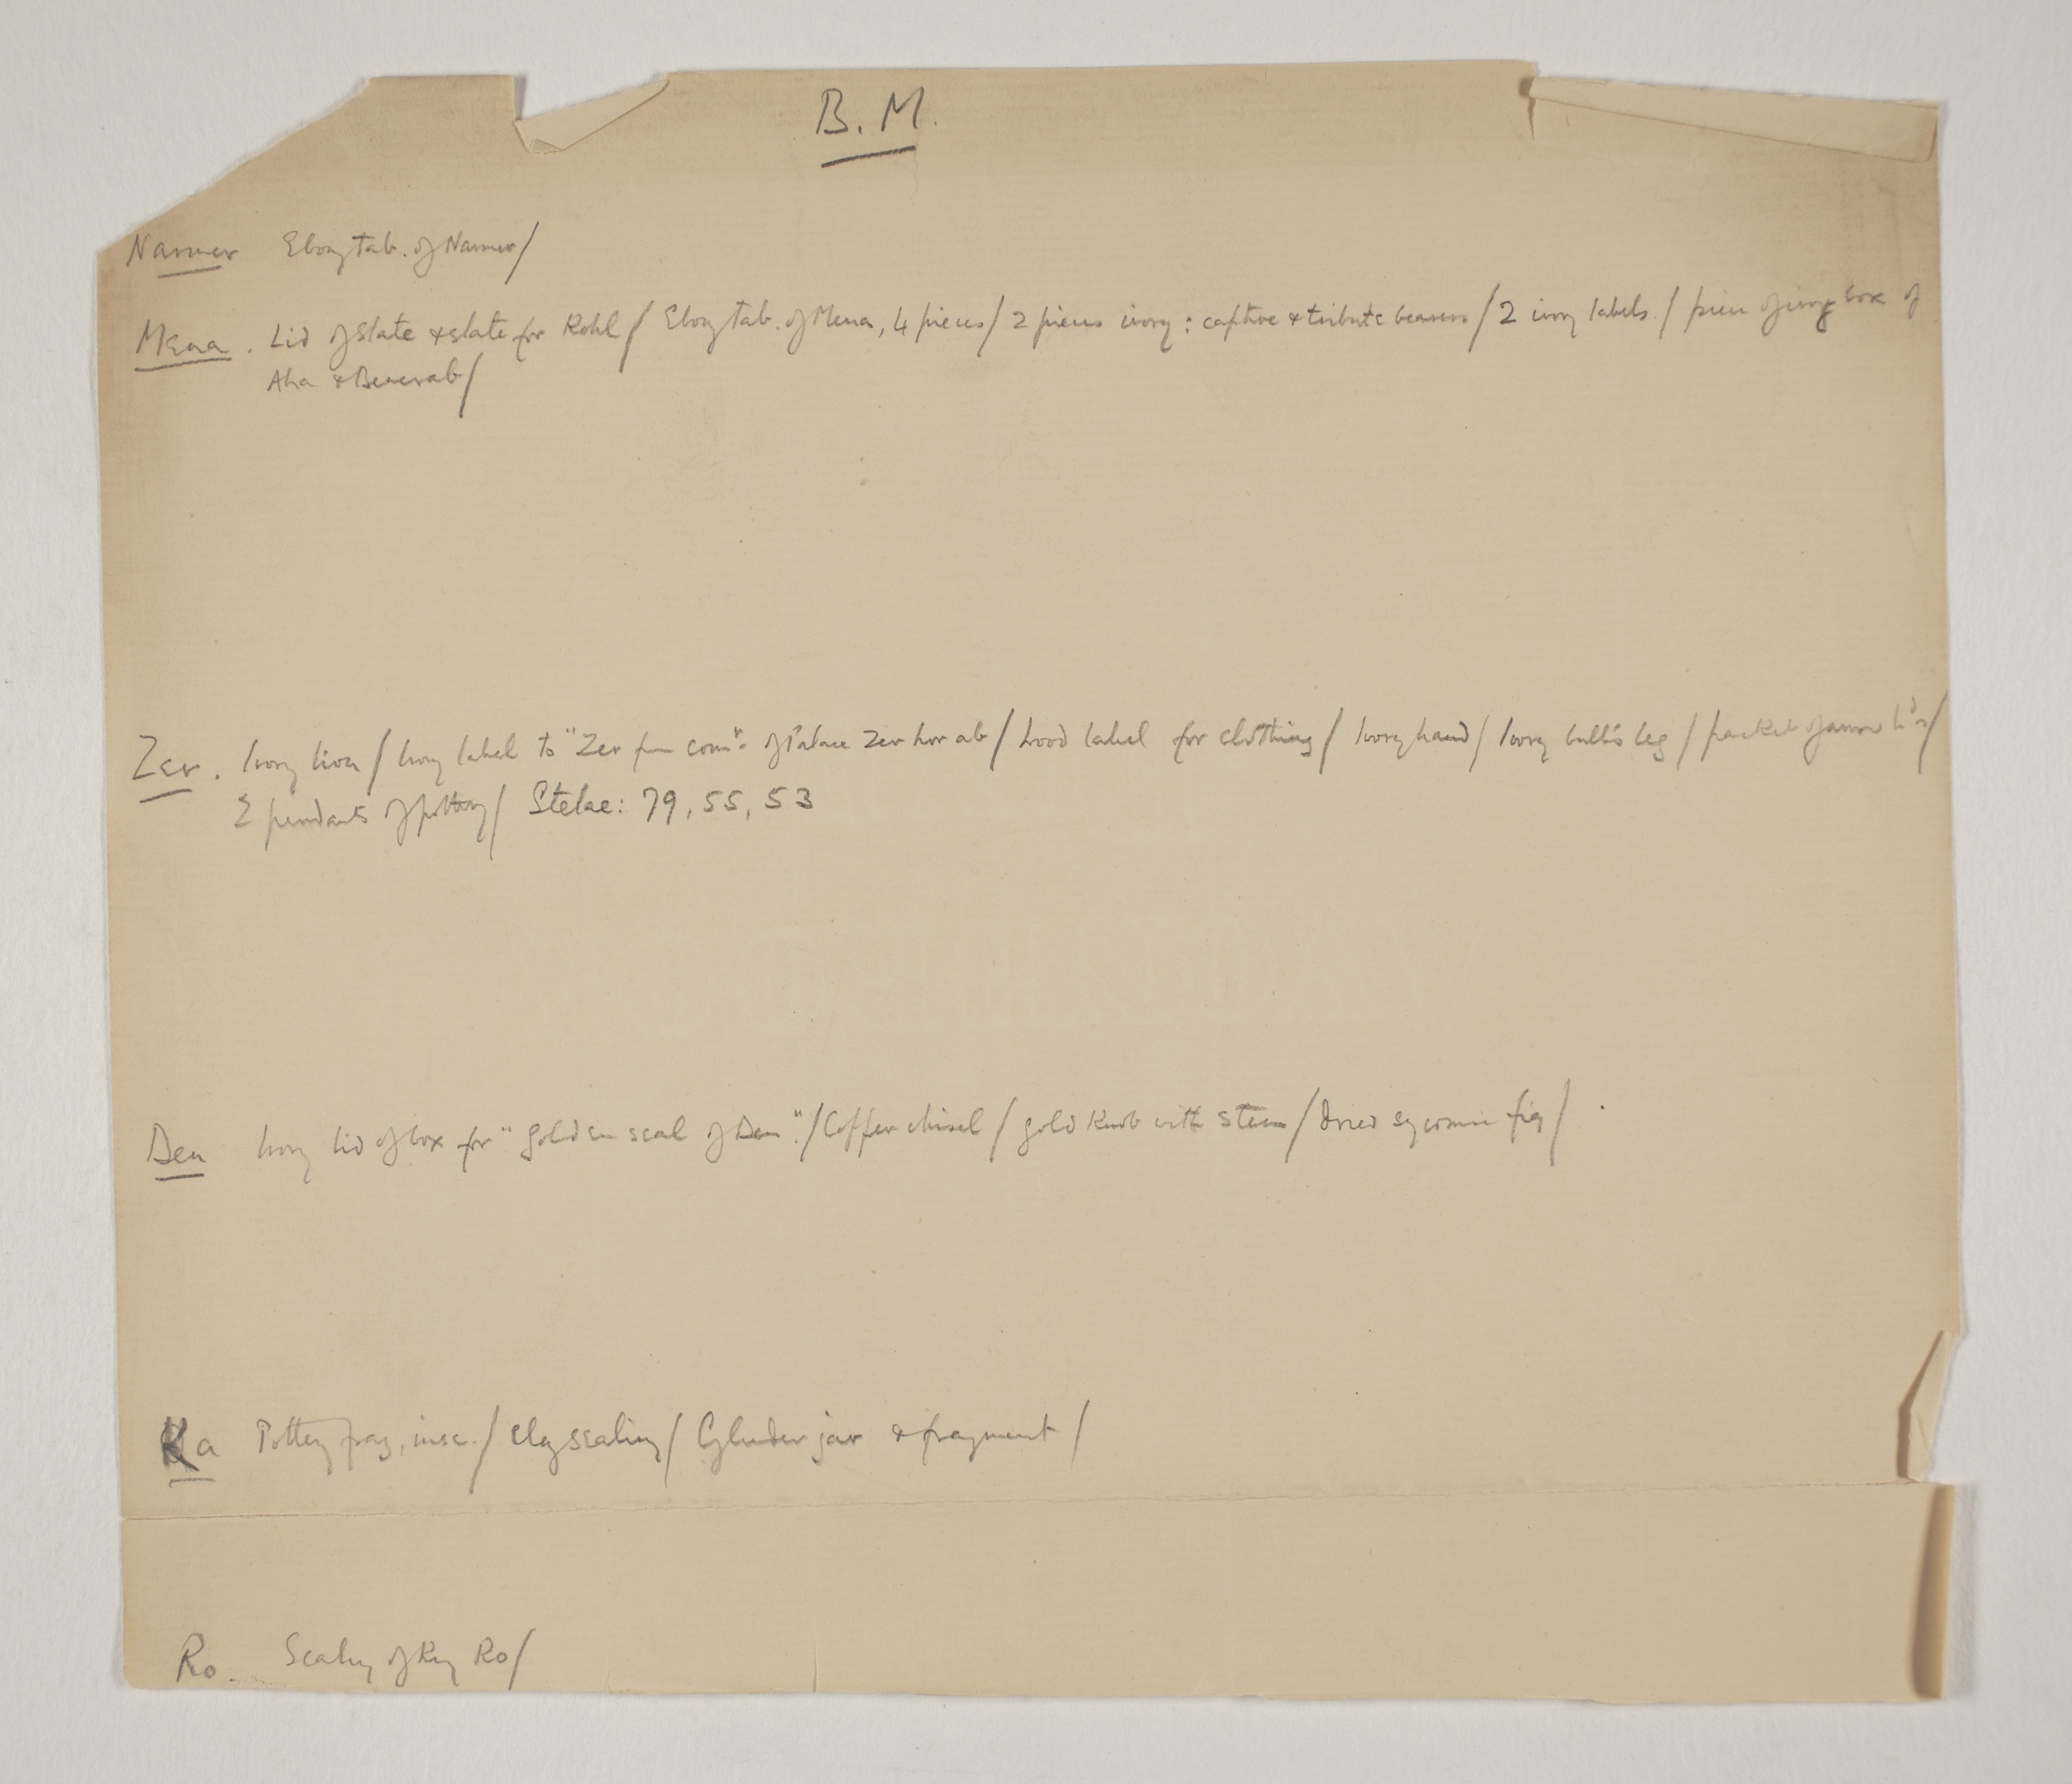 B. M.
Narmer Ebony tab. of Narmer/
Mena. Lid of slate & slate for Kohl/ Ebony tab. of Mena, 4 pieces/ 2 pieces ivory: captive & tribute bearers/ 2 ivory labels./ piece of ivory box of
Aha & Benerab/
Zer. Ivory lion/ Ivory label to "Zer of Palace Zer hor ab/ Wood label for clothing/ Ivory hand/ Ivory bull's leg/ packet of arrow
2 pendants of pottery/ Stelae: 79, 55, 53
Den Ivory lid of box for "golden seal of Den"./ Copper chisel/ gold knob with stem/ Dried sycomore fig/
Ka Pottery frag, insc./ Clay sealing/ Cylinder jar & fragment/
Ro. Sealing of King Ro/